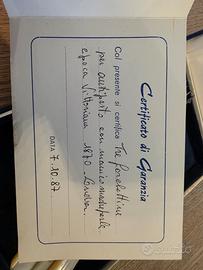 Certificato di Garanzia
Col presente si certifica Tre forchettine
per antipasto con manico madreperla
epoca Vittoriana 1870 Londra.
DATA 7.10.87